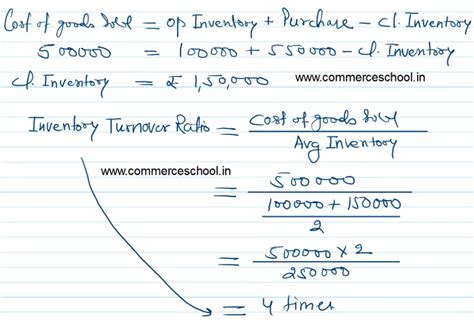 Cost of goods sold = Op Inventory + Purchase - Cl. Inventory
500000 = 100000 + 550000 - Cl. Inventory
Cl. Inventory = ₹ 1,50,000
www.commerceschool.in
Inventory Turnover Ratio = Cost of goods sold
Avg Inventory
www.commerceschool.in
= 500000
100000 + 150000
2
= 500000 × 2
250000
= 4 times